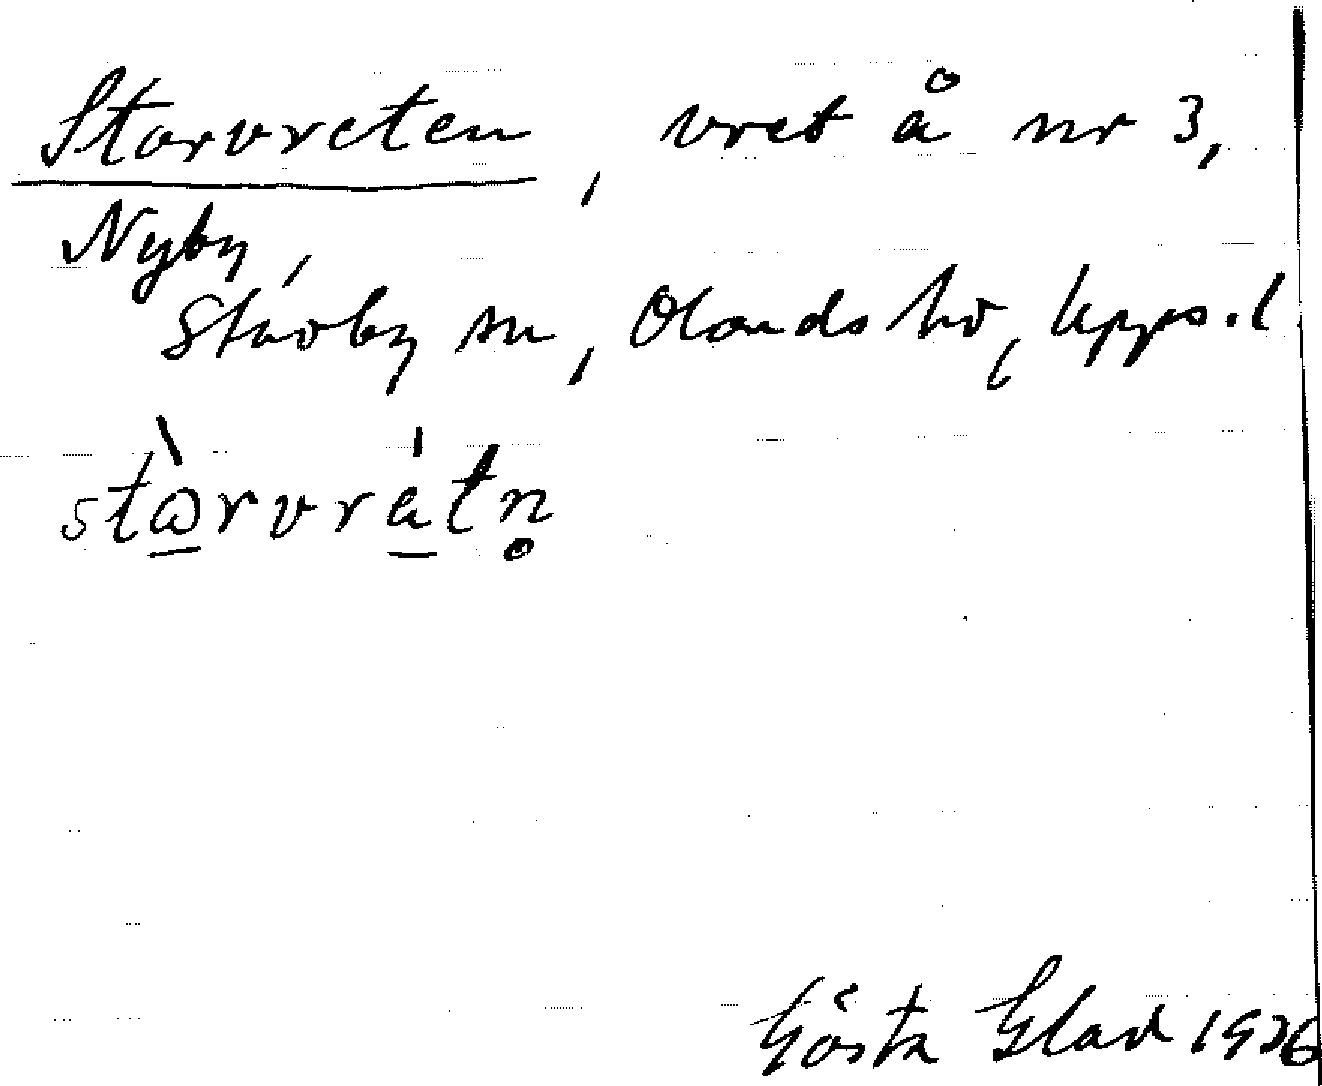 Storvreten, vret å nr 3,
Nyby,
Stavby sn, Olands hd, Upps. l
stòrvrétn̥
Gösta Glad 1936